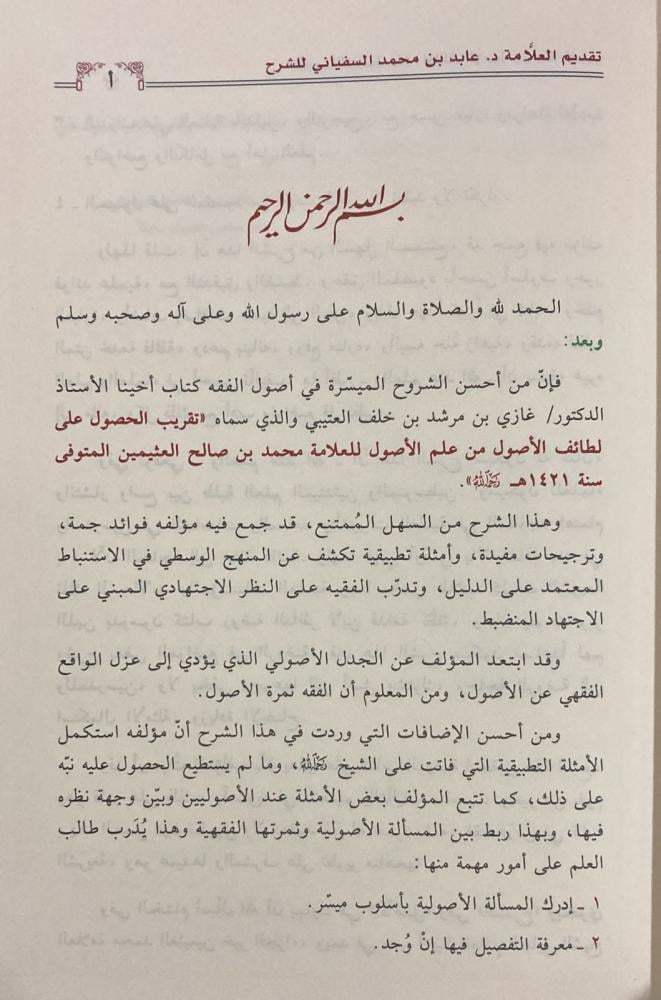 تقديم العلَّامة د. عابد بن محمد السفياني للشرح
أ
بسم الله الرحمن الرحيم
الحمد لله والصلاة والسلام على رسول الله وعلى آله وصحبه وسلم
وبعد:
فإنّ من أحسن الشروح الميسّرة في أصول الفقه كتاب أخينا الأستاذ
الدكتور/ غازي بن مرشد بن خلف العتيبي والذي سماه «تقريب الحصول على
لطائف الأصول من علم الأصول للعلامة محمد بن صالح العثيمين المتوفى
سنة ١٤٢١هـ رَحِمَهُ اللهُ».
وهذا الشرح من السهل المُمتنع، قد جمع فيه مؤلفه فوائد جمة،
وترجيحات مفيدة، وأمثلة تطبيقية تكشف عن المنهج الوسطي في الاستنباط
المعتمد على الدليل، وتدرّب الفقيه على النظر الاجتهادي المبني على
الاجتهاد المنضبط.
وقد ابتعد المؤلف عن الجدل الأصولي الذي يؤدي إلى عزل الواقع
الفقهي عن الأصول، ومن المعلوم أن الفقه ثمرة الأصول.
ومن أحسن الإضافات التي وردت في هذا الشرح أنّ مؤلفه استكمل
الأمثلة التطبيقية التي فاتت على الشيخ رَحِمَهُ اللهُ، وما لم يستطيع الحصول عليه نبّه
على ذلك، كما تتبع المؤلف بعض الأمثلة عند الأصوليين وبيّن وجهة نظره
فيها، وبهذا ربط بين المسألة الأصولية وثمرتها الفقهية وهذا يُدَرب طالب
العلم على أمور مهمة منها:
١ ـ إدرك المسألة الأصولية بأسلوب ميسّر.
٢ ـ معرفة التفصيل فيها إنْ وُجد.